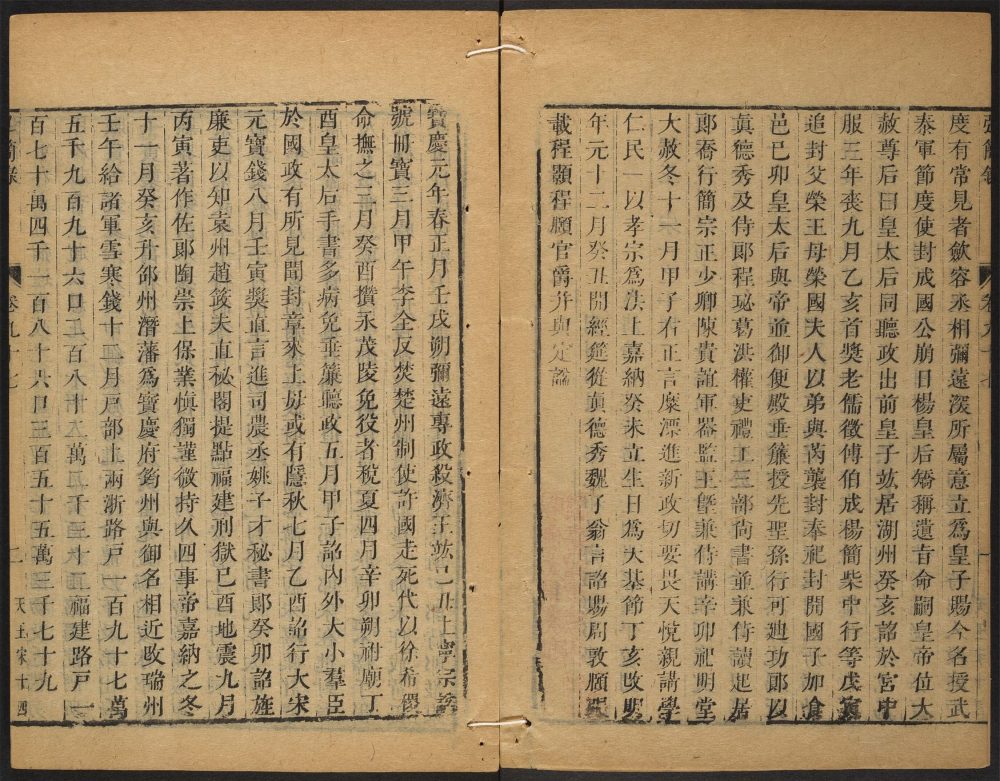 度有常見者斂容丞相彌遠深所屬意立爲皇子賜今名授武
泰軍節度使封成國公崩日楊皇后矯稱遺旨命嗣皇帝位大
赦尊后曰皇太后同聽政出前皇子竑居湖州癸亥詔於宮中
服三年喪九月乙亥首獎老儒徵傅伯成楊簡柴中行等戊寅
追封父榮王母榮國夫人以弟與芮襲封奉祀封開國子加食
邑己卯皇太后與帝並御便殿垂簾授先聖孫行可廸功郎以
眞德秀及侍郎程珌葛洪權吏禮工三部尚書並兼侍讀起居
郎喬行簡宗正少卿陳貴誼軍器監王塈兼侍講辛卯祀明堂
大赦冬十一月甲子右正言糜溧進新政切要畏天悅親講學
仁民一以孝宗爲法上嘉納癸未立生日爲天基節丁亥改明
年元十二月癸丑開經筵從眞德秀魏了翁言詔賜周敦頤張
載程顥程頤官爵幷與定謚
寶慶元年春正月壬戌朔彌遠專政殺濟王竑己丑上寧宗諡
號冊寶三月甲午李全反焚楚州制使許國走死代以徐希稷
命撫之三月癸酉攢永茂陵免役者稅夏四月辛卯朔祔廟丁
酉皇太后手書多病免垂簾聽政五月甲子詔內外大小羣臣
於國政有所見聞封章來上毋或有隱秋七月乙酉詔行大宋
元寶錢八月壬寅獎直言進司農丞姚子才秘書郎癸卯詔旌
廉吏以知袁州趙䈣夫直秘閣提點福建刑獄己酉地震九月
丙寅著作佐郎陶崇上保業愼獨謹微持久四事帝嘉納之冬
十一月癸亥升邵州潛藩爲寶慶府筠州與御名相近改瑞州
壬午給諸軍雪寒錢十二月戶部上兩浙路戶一百九十七萬
五千九百九十六口二百八十二萬二千三十二福建路戶一
百七十萬四千一百八十六口三百五十五萬三千七十九
卷九十七
天王宋十四